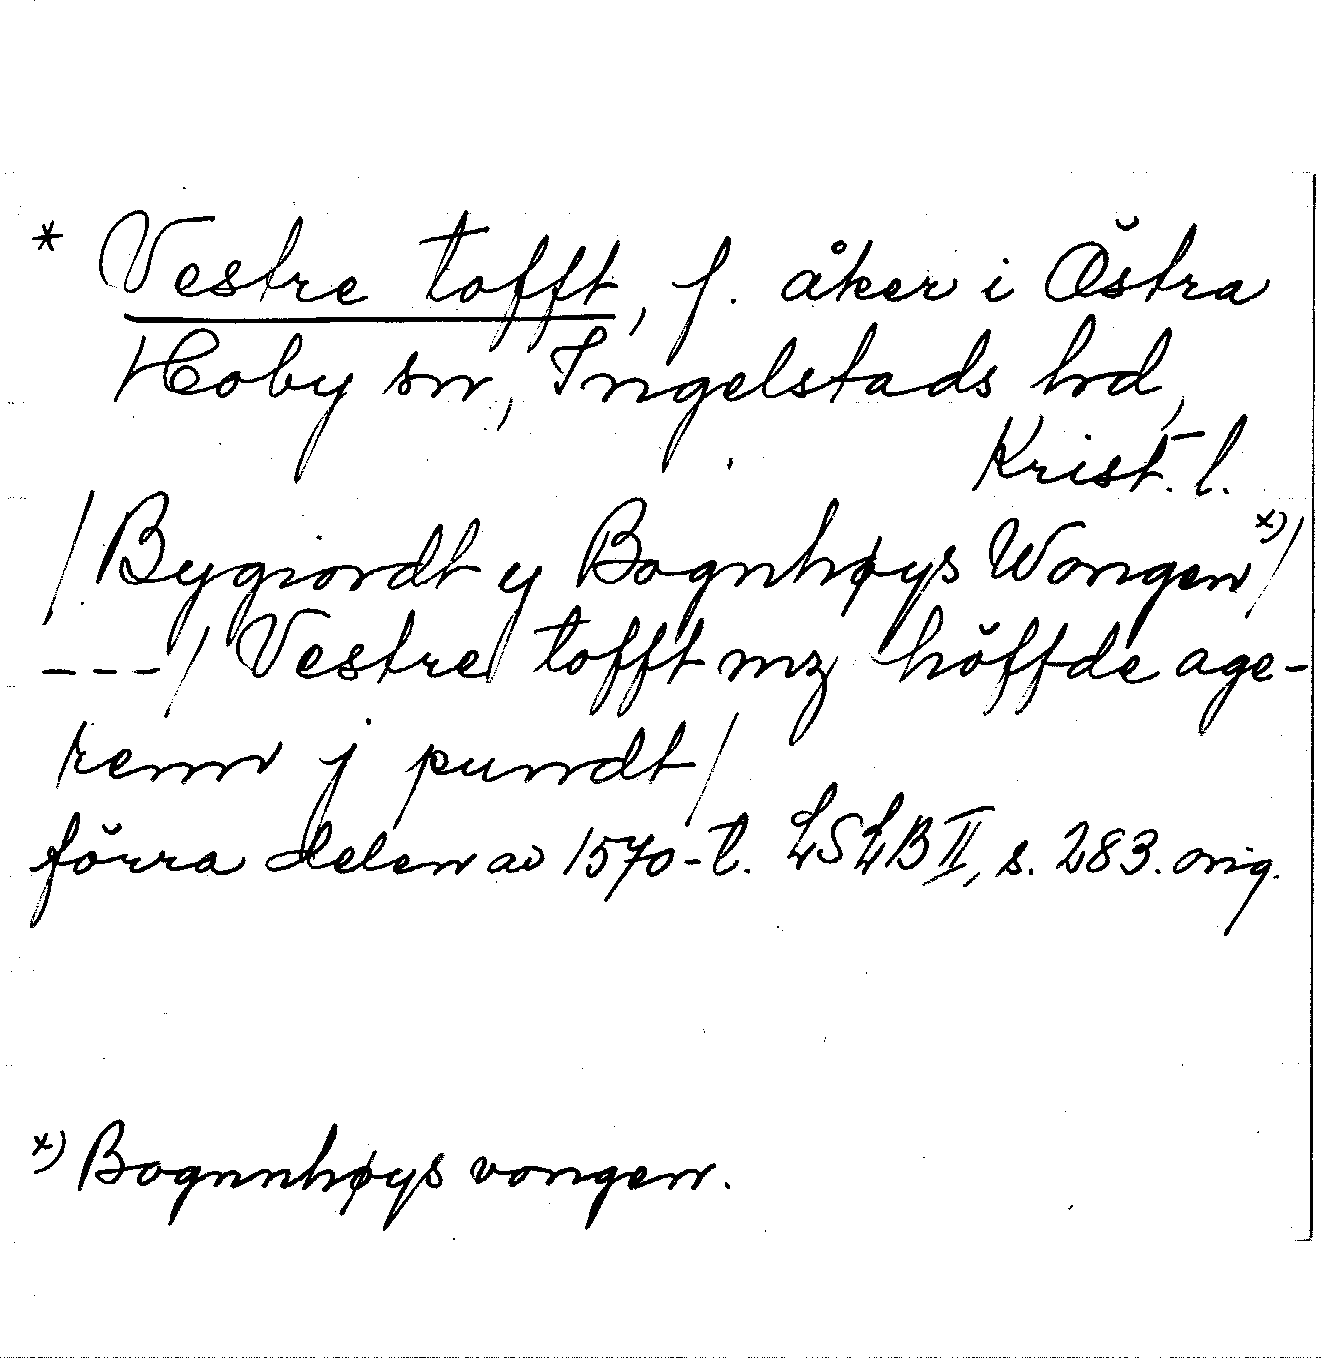 * Vestre tofft, f. åker i Östra
Hoby sn, Ingelstads hrd,
Krist. l.
/Bygiordt y Bognhøys Wongen x)/
---/ Vestre tofft mz höffde age-
renn j pundt/
förra delen av 1570-t. LSLB II, s. 283. orig.
x) Bognnhøys vongen.